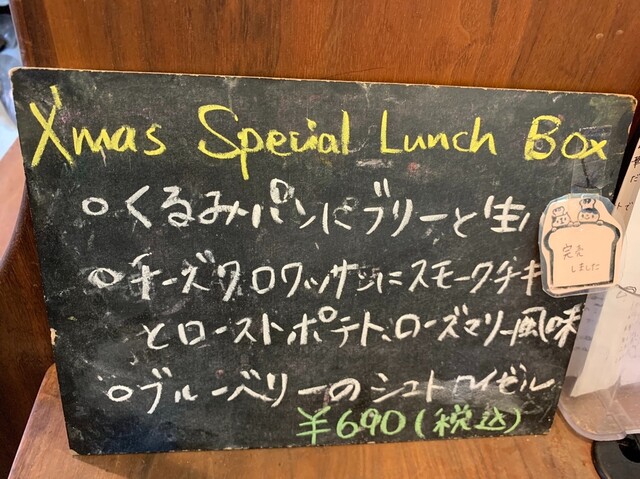 Xmas Special Lunch Box
○くるみパンにブリーと生ハ
○チーズクロワッサンにスモークチキ
とローストポテト、ローズマリー風味
○ブルーベリーのシュトロイゼル
¥690(税込)
完売
しました